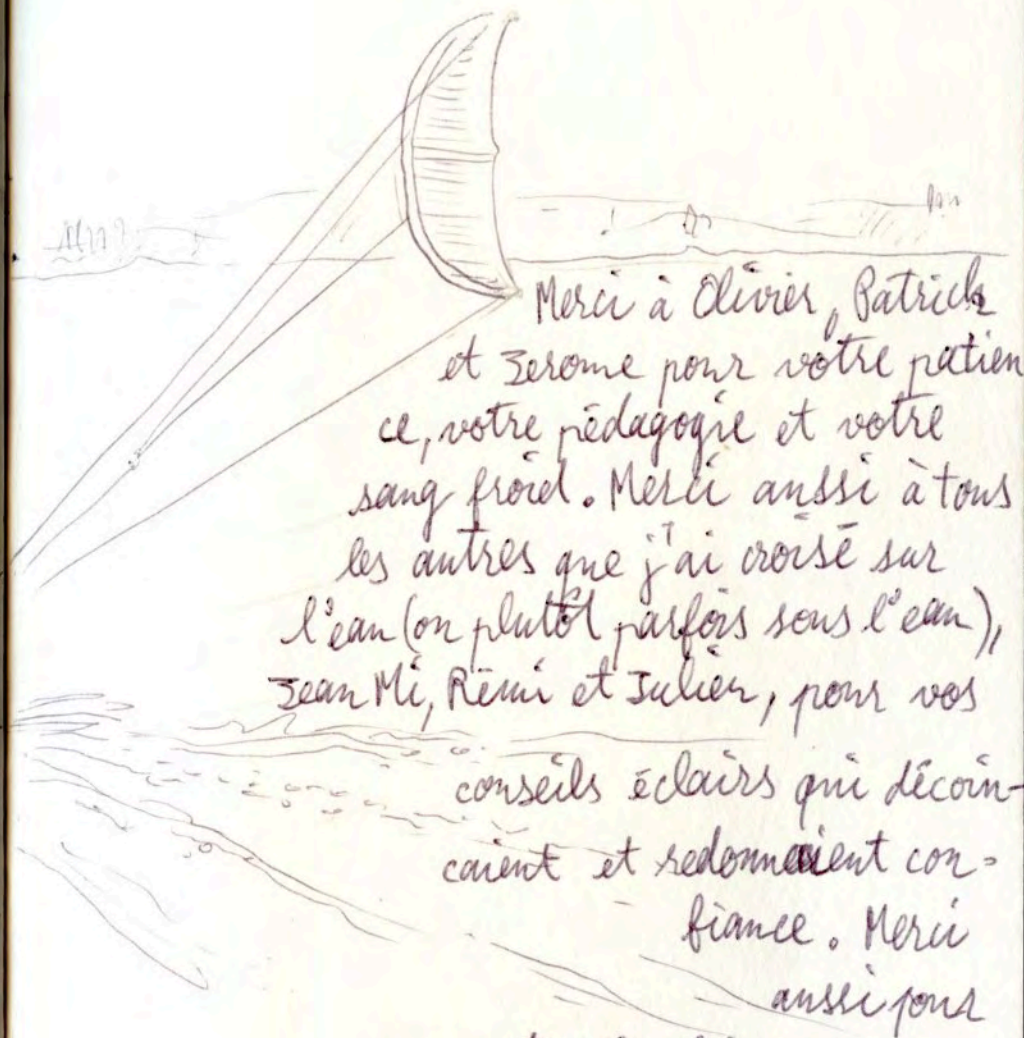 Merci à Olivier, Patrick
et Jerome pour votre patien
ce, votre pédagogie et votre
sang froid. Merci aussi à tous
les autres que j'ai croisé sur
l'eau (ou plutôt parfois sous l'eau),
Jean Mi, Rémi et Julien, pour vos
conseils éclairs qui décoin-
caient et redonnaient con-
fiance. Merci
aussi pour